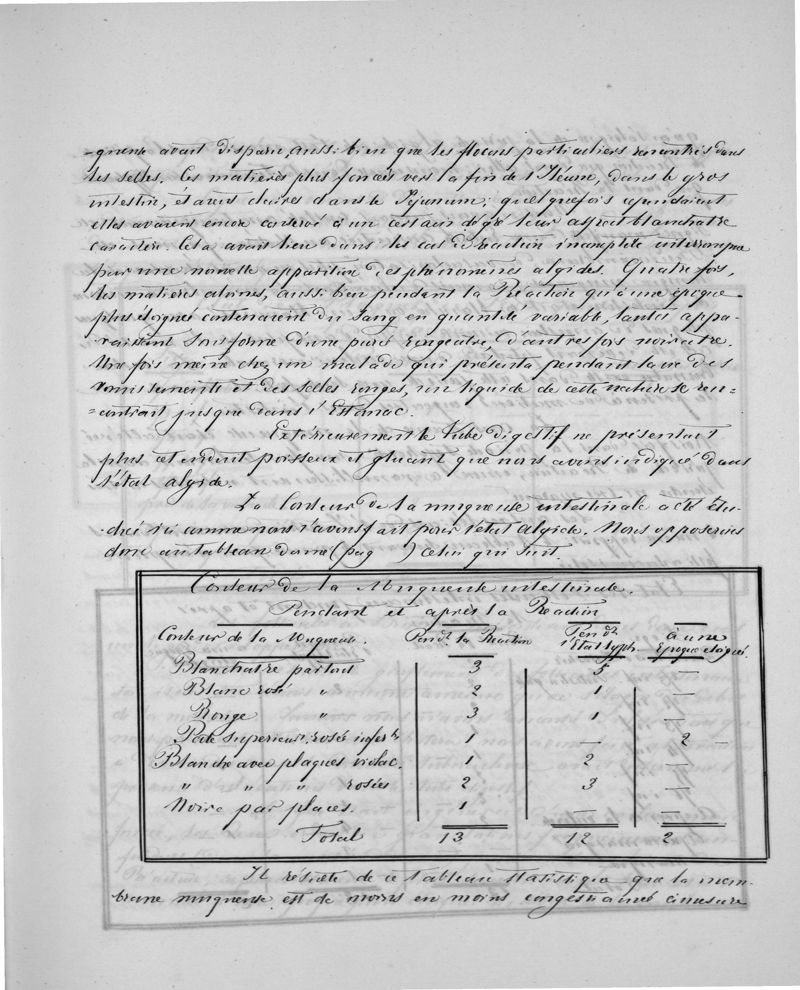 -queuse avait disparu, aussi bien que les flocons particuliers rencontrés dans
les selles. Ces matières plus foncées vers la fin de l'Iléum, dans le gros
intestin, étaient claires dans le Jéjunum; quelquefois cependant
elles avaient encore conservé à un certain dégré leur aspect blanchatre
caractère. Cela avait lieu dans les cas de réaction incomplete interrompue
par une nouvelle apparition des phénomènes algides. Quatre fois,
les matières alvines, aussi bien pendant la Réaction qu'à une époque
plus éloignée contenaient du sang en quantité variable, tantot appa-
raissant sous forme d'une purée rougeatre, d'autres fois noiratre.
Une fois même chez un malade qui présenta pendant la vie des
vomissements et des selles rouges, un liquide de cette nature se ren-
=contrait jusque dans l'Estomac.
Extérieurement le Tube digestif ne présentait
plus cet enduit poisseux et gluant que nous avons indiqué dans
l'état algide.
La Couleur de la muqueuse intestinale a été étu-
diée ici comme nous l'avons fait pour l'état algide. Nous opposerons
donc au tableau donné (pag ) celui qui suit.
Couleur de la Muqueuse intestinale.
Pendant et après la Réaction
Couleur de la Muqueuse. Pend.t la Réaction Pend.t l'Etat typh. à une Epoque éloignée.
Blanchatre partout 3 5 —
Blanc rosé " 2 1 —
Rouge " 3 1 —
superieur. rosée infer.re 1 — 2 —
Blanche avec plaques violac. 1 2 —
" " " rosées 2 3 —
Noire par places. 1 — —
Total 13 12 2
Il résulte de ce tableau statistique que la mem-
brane muqueuse est de moins en moins congestionnée à mesure